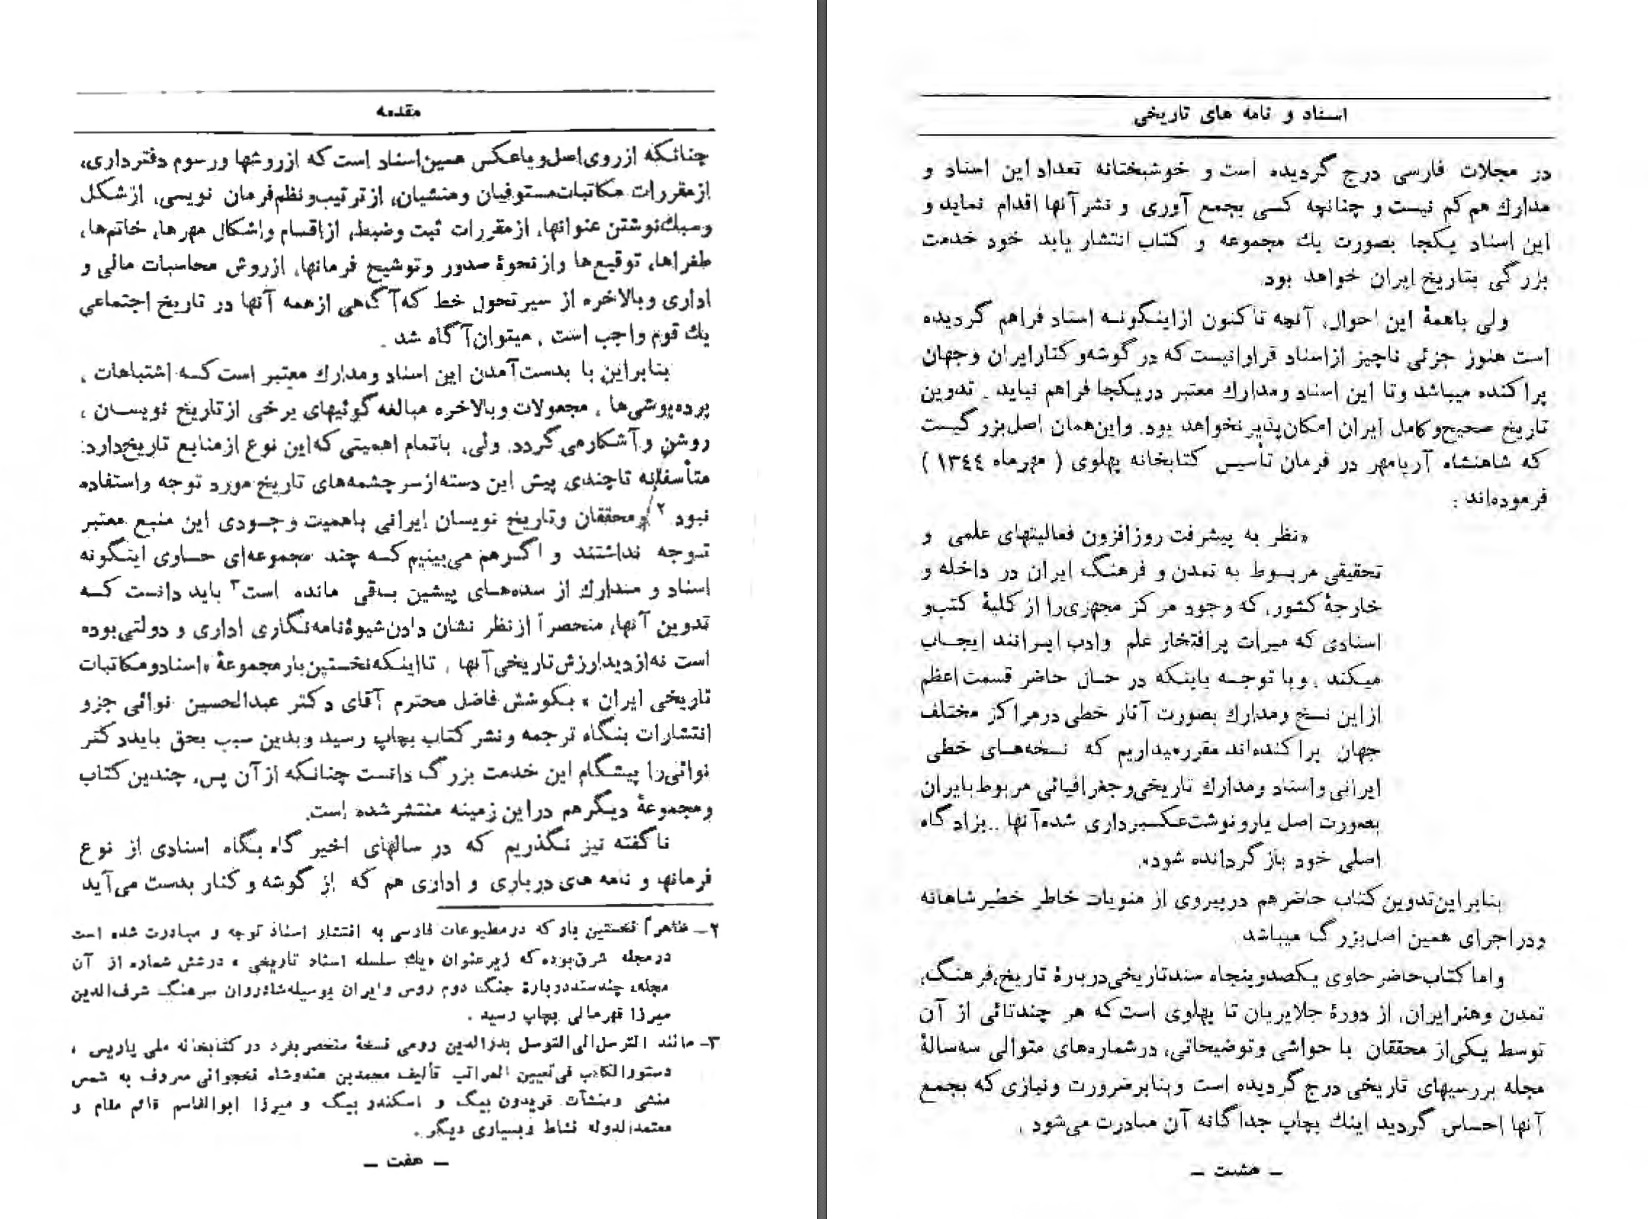 مقدمه
چنانکه از روی اصل و یا عکس همین اسناد است که از روشها و رسوم دفترداری،
از مقررات مکاتبات مستوفیان و منشیان، از ترتیب و نظم فرمان نویسی، از شکل
و سبك نوشتن عنوانها، از مقررات ثبت و ضبط، از اقسام و اشکال مهرها، خاتم‌ها،
طغراها، توقیع‌ها و از نحوهٔ صدور و توشیح فرمانها، از روش محاسبات مالی و
اداری و بالاخره از سیر تحول خط که آگاهی از همه آنها در تاریخ اجتماعی
يك قوم واجب است ، میتوان آگاه شد .
بنابراین با بدست آمدن این اسناد و مدارك معتبر است که اشتباهات ،
پرده‌پوشی‌ها ، مجعولات و بالاخره مبالغه گوئیهای برخی از تاریخ نویسان ،
روشن و آشکار می‌گردد. ولی، باتمام اهمیتی که این نوع از منابع تاریخ دارد:
متأسفانه تا چندی پیش این دسته از سرچشمه‌های تاریخ مورد توجه و استفاده
نبود ۲ و محققان و تاریخ نویسان ایرانی باهمیت وجودی این منبع معتبر
توجه نداشتند و اگر هم می‌بینیم که چند مجموعه‌ای حاوی اینگونه
اسناد و مدارك از سده‌های پیشین باقی مانده است۳ باید دانست که
تدوین آنها، منحصراً از نظر نشان دادن شیوهٔ نامه‌نگاری اداری و دولتی بوده
است نه از دید ارزش تاریخی آنها ، تا اینکه نخستین بار مجموعهٔ «اسناد و مکاتبات
تاریخی ایران » بکوشش فاضل محترم آقای دکتر عبدالحسین نوائی جزو
انتشارات بنگاه ترجمه و نشر کتاب بچاپ رسید و بدین سبب بحق باید دکتر
نوائی را پیشگام این خدمت بزرگ دانست چنانکه از آن پس، چندین کتاب
و مجموعهٔ دیگر هم در این زمینه منتشر شده است.
ناگفته نیز نگذریم که در سالهای اخیر گاه بگاه اسنادی از نوع
فرمانها و نامه های درباری و اداری هم که از گوشه و کنار بدست می‌آید
۲ـ ظاهراً نخستین بار که در مطبوعات فارسی به انتشار اسناد توجه و مبادرت شده است
در مجله شرق بوده که زیر عنوان «يك سلسله اسناد تاریخی » در شش شماره از آن
مجله، چند سند دربارهٔ جنگ دوم روس و ایران بوسیله شادروان سرهنگ شرف‌الدین
میرزا قهرمانی بچاپ رسید .
۳ـ مانند الترسل الی التوسل بدرالدین رومی نسخهٔ منحصر بفرد در کتابخانه ملی پاریس ،
دستورالکاتب فی تعیین المراتب تألیف محمد بن هندوشاه نخجوانی معروف به شمس
منشی و منشآت فریدون بیگ و اسکندر بیگ و میرزا ابوالقاسم قائم مقام و
معتمدالدوله نشاط و بسیاری دیگر .
ـ هفت ـ
اسناد و نامه های تاریخی
در مجلات فارسی درج گردیده است و خوشبختانه تعداد این اسناد و
مدارك هم کم نیست و چنانچه کسی بجمع آوری و نشر آنها اقدام نماید و
این اسناد یکجا بصورت يك مجموعه و کتاب انتشار یابد خود خدمت
بزرگی بتاریخ ایران خواهد بود.
ولی باهمهٔ این احوال، آنچه تاکنون از اینگونه اسناد فراهم گردیده
است هنوز جزئی ناچیز از اسناد فراوانیست که در گوشه و کنار ایران و جهان
پراکنده میباشد و تا این اسناد و مدارك معتبر در یکجا فراهم نیاید . تدوین
تاریخ صحیح و کامل ایران امکان‌پذیر نخواهد بود. و این همان اصل بزرگیست
که شاهنشاه آریامهر در فرمان تأسیس کتابخانه پهلوی ( مهرماه ۱۳۴۴ )
فرموده‌اند :
«نظر به پیشرفت روزافزون فعالیتهای علمی و
تحقیقی مربوط به تمدن و فرهنگ ایران در داخله و
خارجهٔ کشور، که وجود مرکز مجهزی را از کلیهٔ کتب و
اسنادی که میراث پرافتخار علم و ادب ایرانند ایجاب
میکند ، و با توجه باینکه در حال حاضر قسمت اعظم
از این نسخ و مدارك بصورت آثار خطی در مراکز مختلف
جهان پراکنده‌اند مقرر میداریم که نسخه‌های خطی
ایرانی و اسناد و مدارك تاریخی و جغرافیائی مربوط بایران
بصورت اصل یا رونوشت عکسبرداری شده آنها .. بزادگاه
اصلی خود بازگردانده شود».
بنابراین تدوین کتاب حاضر هم در پیروی از منویات خاطر خطیر شاهانه
و در اجرای همین اصل بزرگ میباشد.
و اما کتاب حاضر حاوی یکصد و پنجاه سند تاریخی دربارهٔ تاریخ، فرهنگ،
تمدن و هنر ایران، از دورهٔ جلایریان تا پهلوی است که هر چندتائی از آن
توسط یکی از محققان با حواشی و توضیحاتی، در شماره‌های متوالی سه سالهٔ
مجله بررسیهای تاریخی درج گردیده است و بنابر ضرورت و نیازی که بجمع
آنها احساس گردید اینك بچاپ جداگانه آن مبادرت می‌شود .
ـ هشت ـ